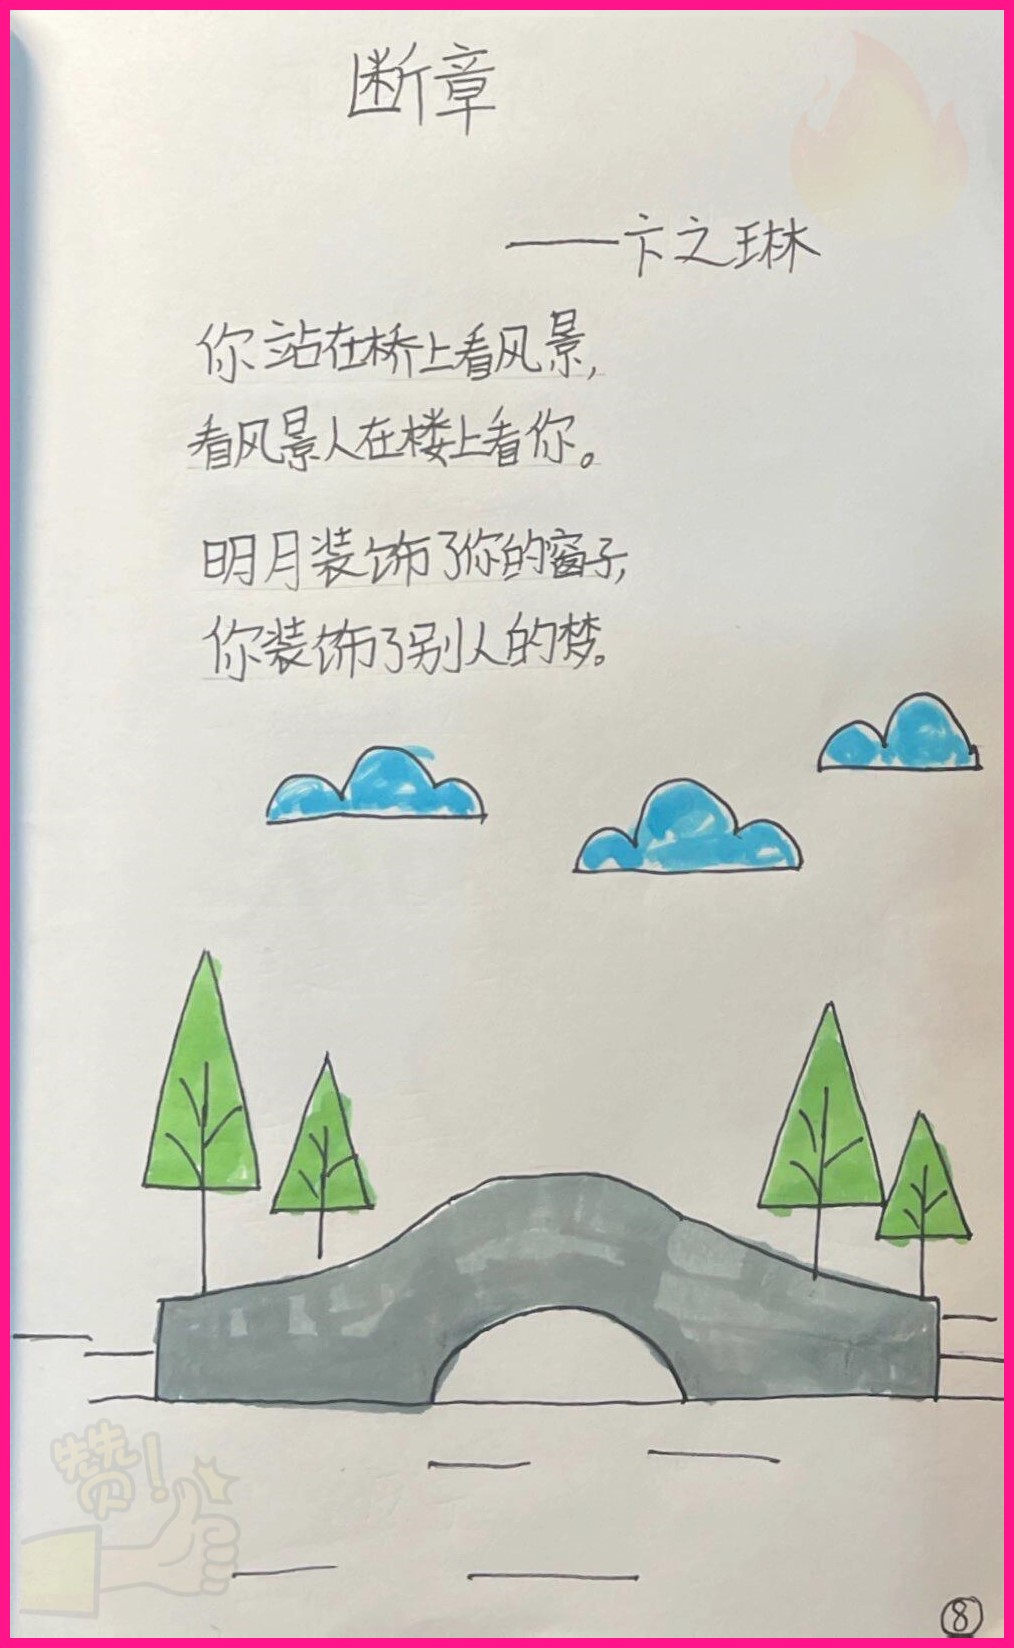 断章
——卞之琳
你站在桥上看风景,
看风景人在楼上看你。
明月装饰了你的窗子,
你装饰了别人的梦。
赞!
8